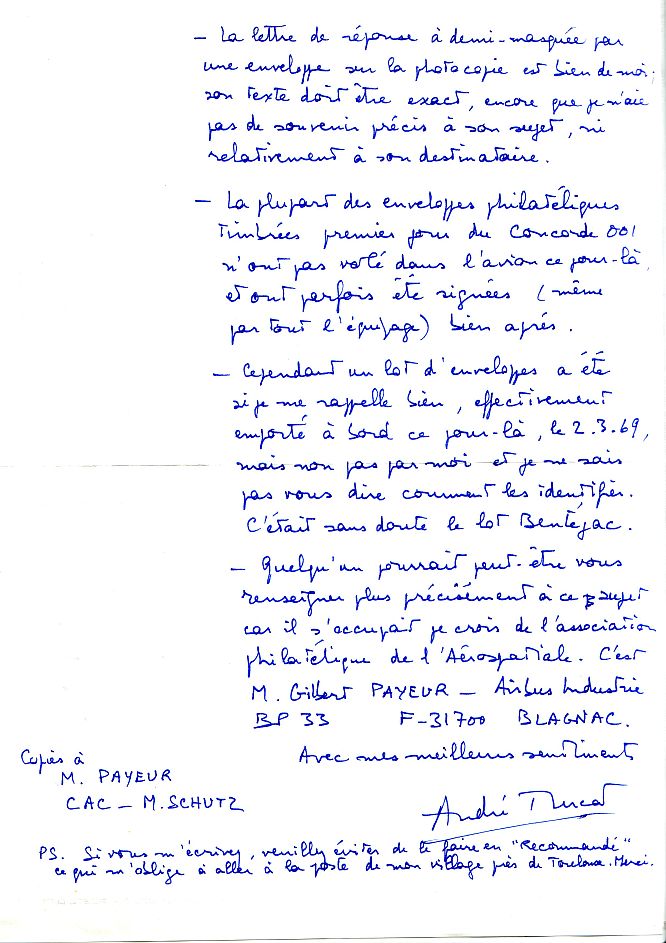 – La lettre de réponse à demi-masquée par
une enveloppe sur la photocopie est bien de moi;
son texte doit être exact, encore que je n'aie
pas de souvenir précis à son sujet, ni
relativement à son destinataire.
– La plupart des enveloppes philatéliques
timbrées premier jour du Concorde 001
n'ont pas volé dans l'avion ce jour-là,
et ont parfois été signées (même
par tout l'équipage) bien après.
– Cependant un lot d'enveloppes a été
si je me rappelle bien, effectivement
emporté à bord ce jour-là, le 2.3.69,
mais non pas par moi et je ne sais
pas vous dire comment les identifier.
C'était sans doute le lot Bentéjac.
– Quelqu'un pourrait peut-être vous
renseigner plus précisément à ce sujet
car il s'occupait je crois de l'association
philatélique de l'Aérospatiale. C'est
M. Gilbert PAYEUR – Airbus Industrie
BP 33 F-31700 BLAGNAC.
Avec mes meilleurs sentiments
Copies à
M. PAYEUR
CAC – M. SCHUTZ
André Turcat
PS. Si vous m'écrivez, veuillez éviter de le faire en "Recommandé"
ce qui m'oblige à aller à la poste de mon village près de Toulouse. Merci.